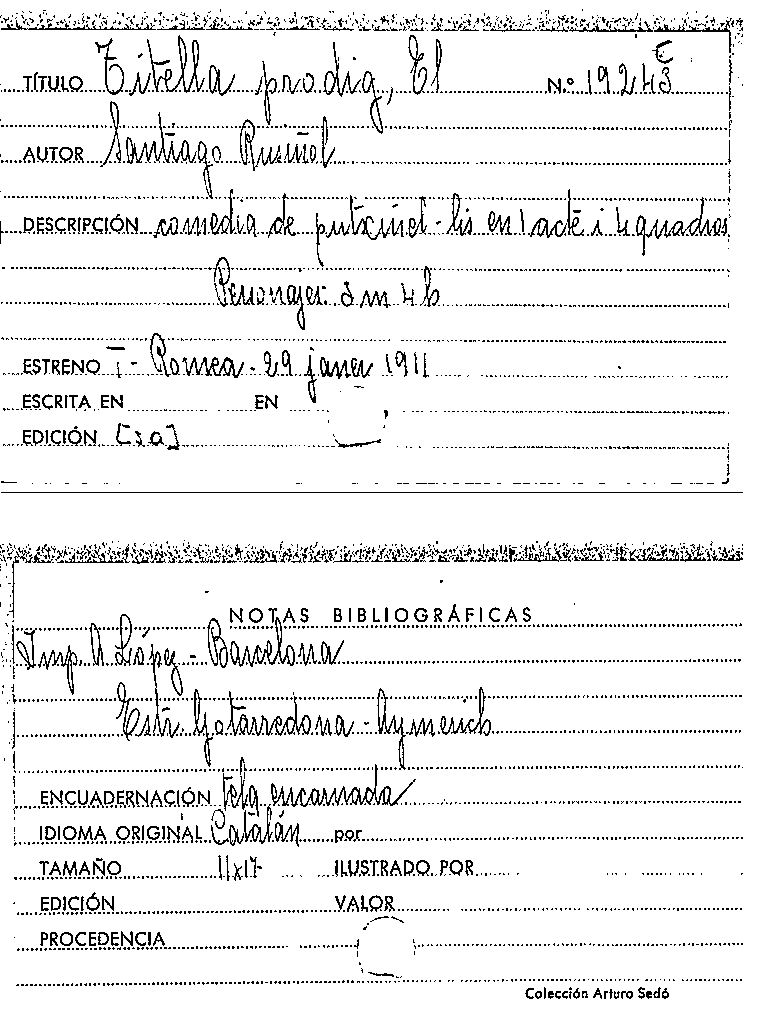 TÍTULO Titella prodig, El N.º 19243 C
AUTOR Santiago Rusiñol
DESCRIPCIÓN comedia de putxinel-lis en 1 acte i 4 quadros
Personajes: 3 m 4 h
ESTRENO T- Romea - 29 janer 1911
ESCRITA EN EN
EDICIÓN [s a]
NOTAS BIBLIOGRÁFICAS
Imp. A López - Barcelona
Estr. Gotarredona - Aymerich
ENCUADERNACIÓN tela encarnada
IDIOMA ORIGINAL Catalán por
TAMAÑO 11x17 ILUSTRADO POR
EDICIÓN VALOR
PROCEDENCIA
Colección Arturo Sedó